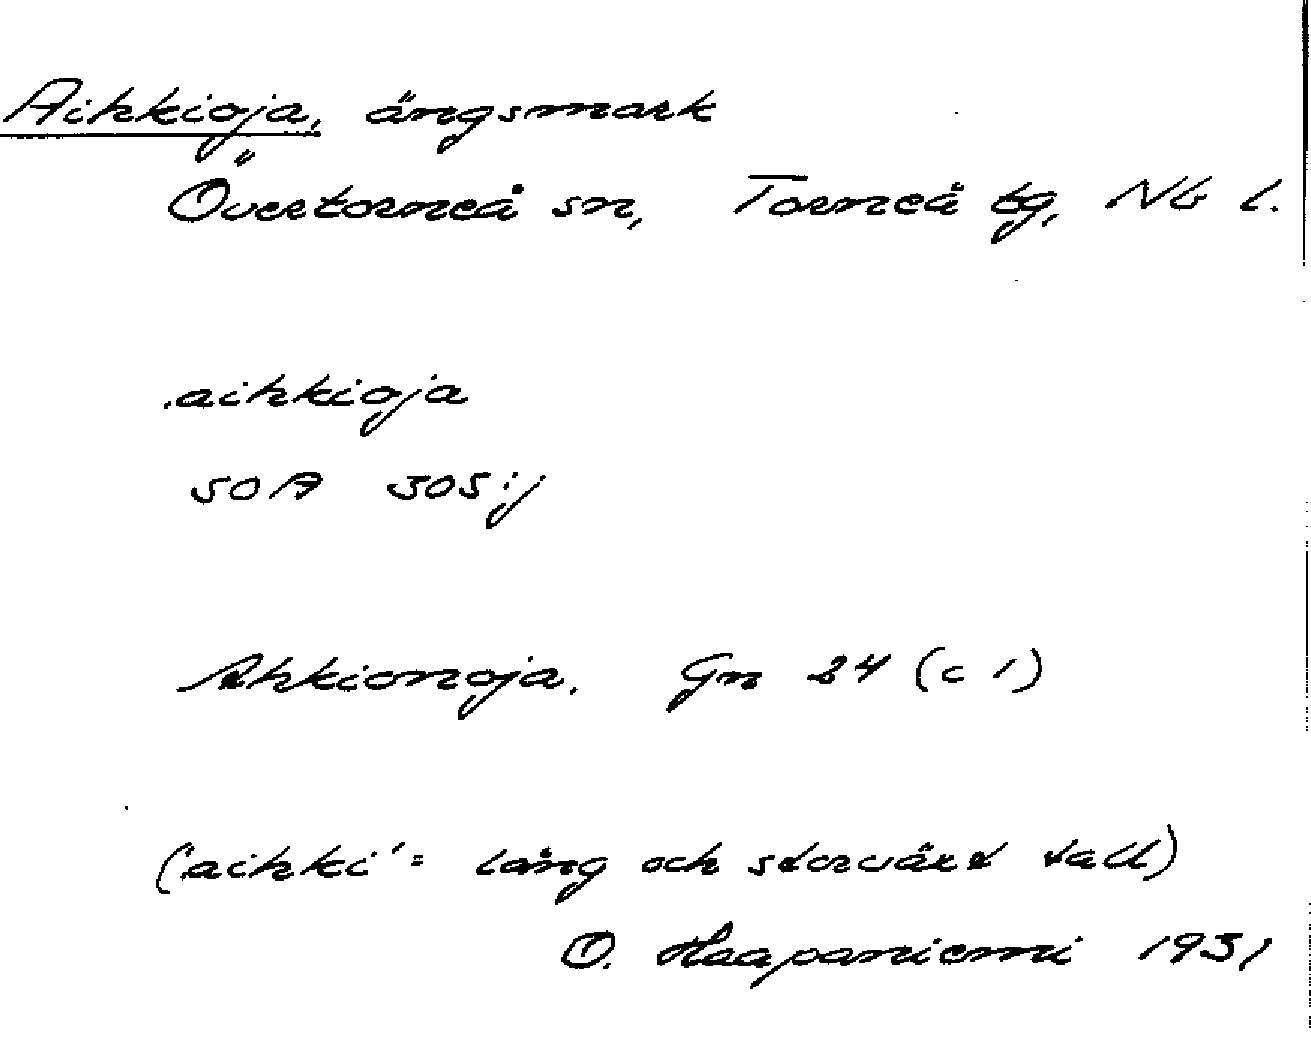 Aihkioja, ängsmark
Övertorneå sn, Torneå tg, Nb l.
aihkioja
SOA 305:j
Ahkionoja. Gn 24 (c 1)
('aihki' = lång och storvärt tall)
O. Haapaniemi 1931